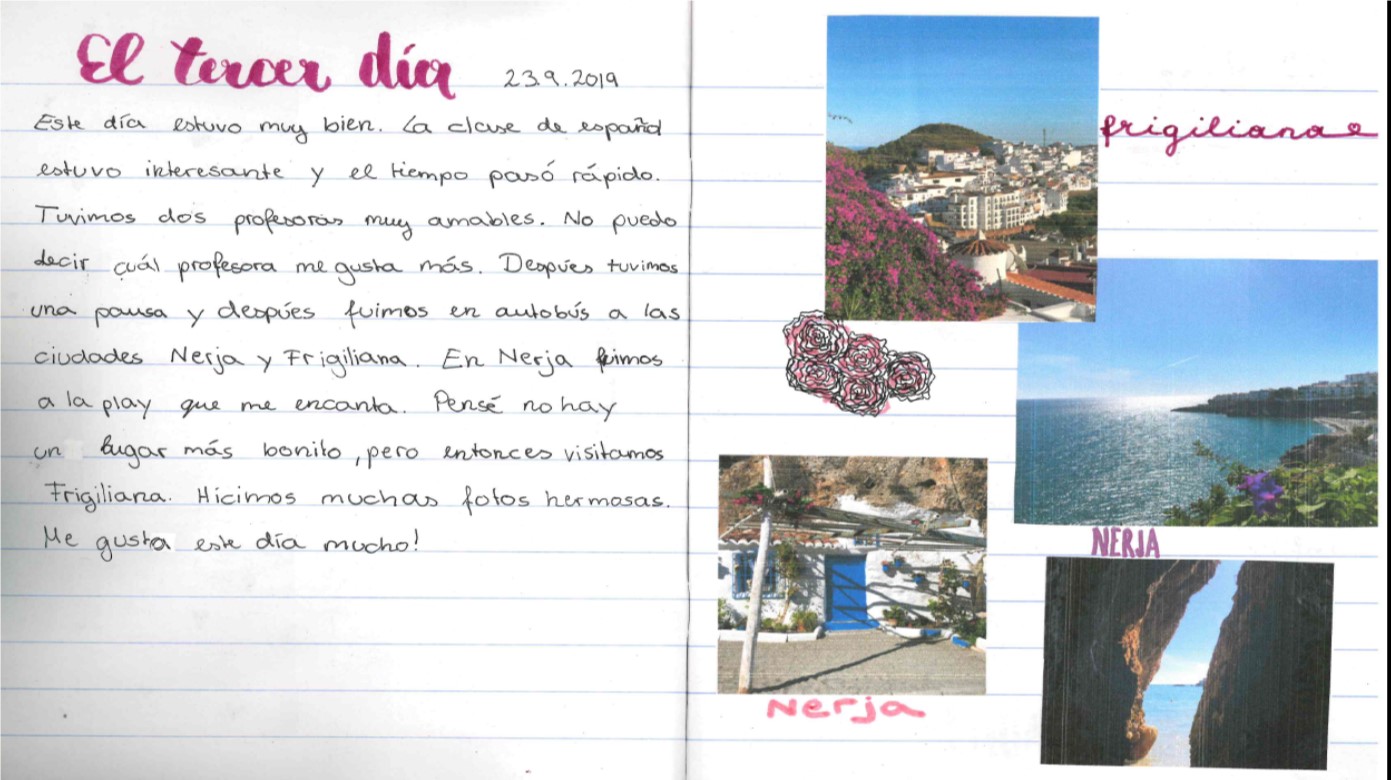 El tercer día 23.9.2019
Este día estuvo muy bien. La clase de español
estuvo interesante y el tiempo pasó rápido.
Tuvimos dos profesoras muy amables. No puedo
decir cuál profesora me gusta más. Después tuvimos
una pausa y despúes fuimos en autobús a las
ciudades Nerja y Frigiliana. En Nerja fuimos
a la play que me encanta. Pensé no hay
un lugar más bonito, pero entonces visitamos
Frigiliana. Hicimos muchas fotos hermosas.
Me gusta este día mucho!
frigiliana
NERJA
Nerja